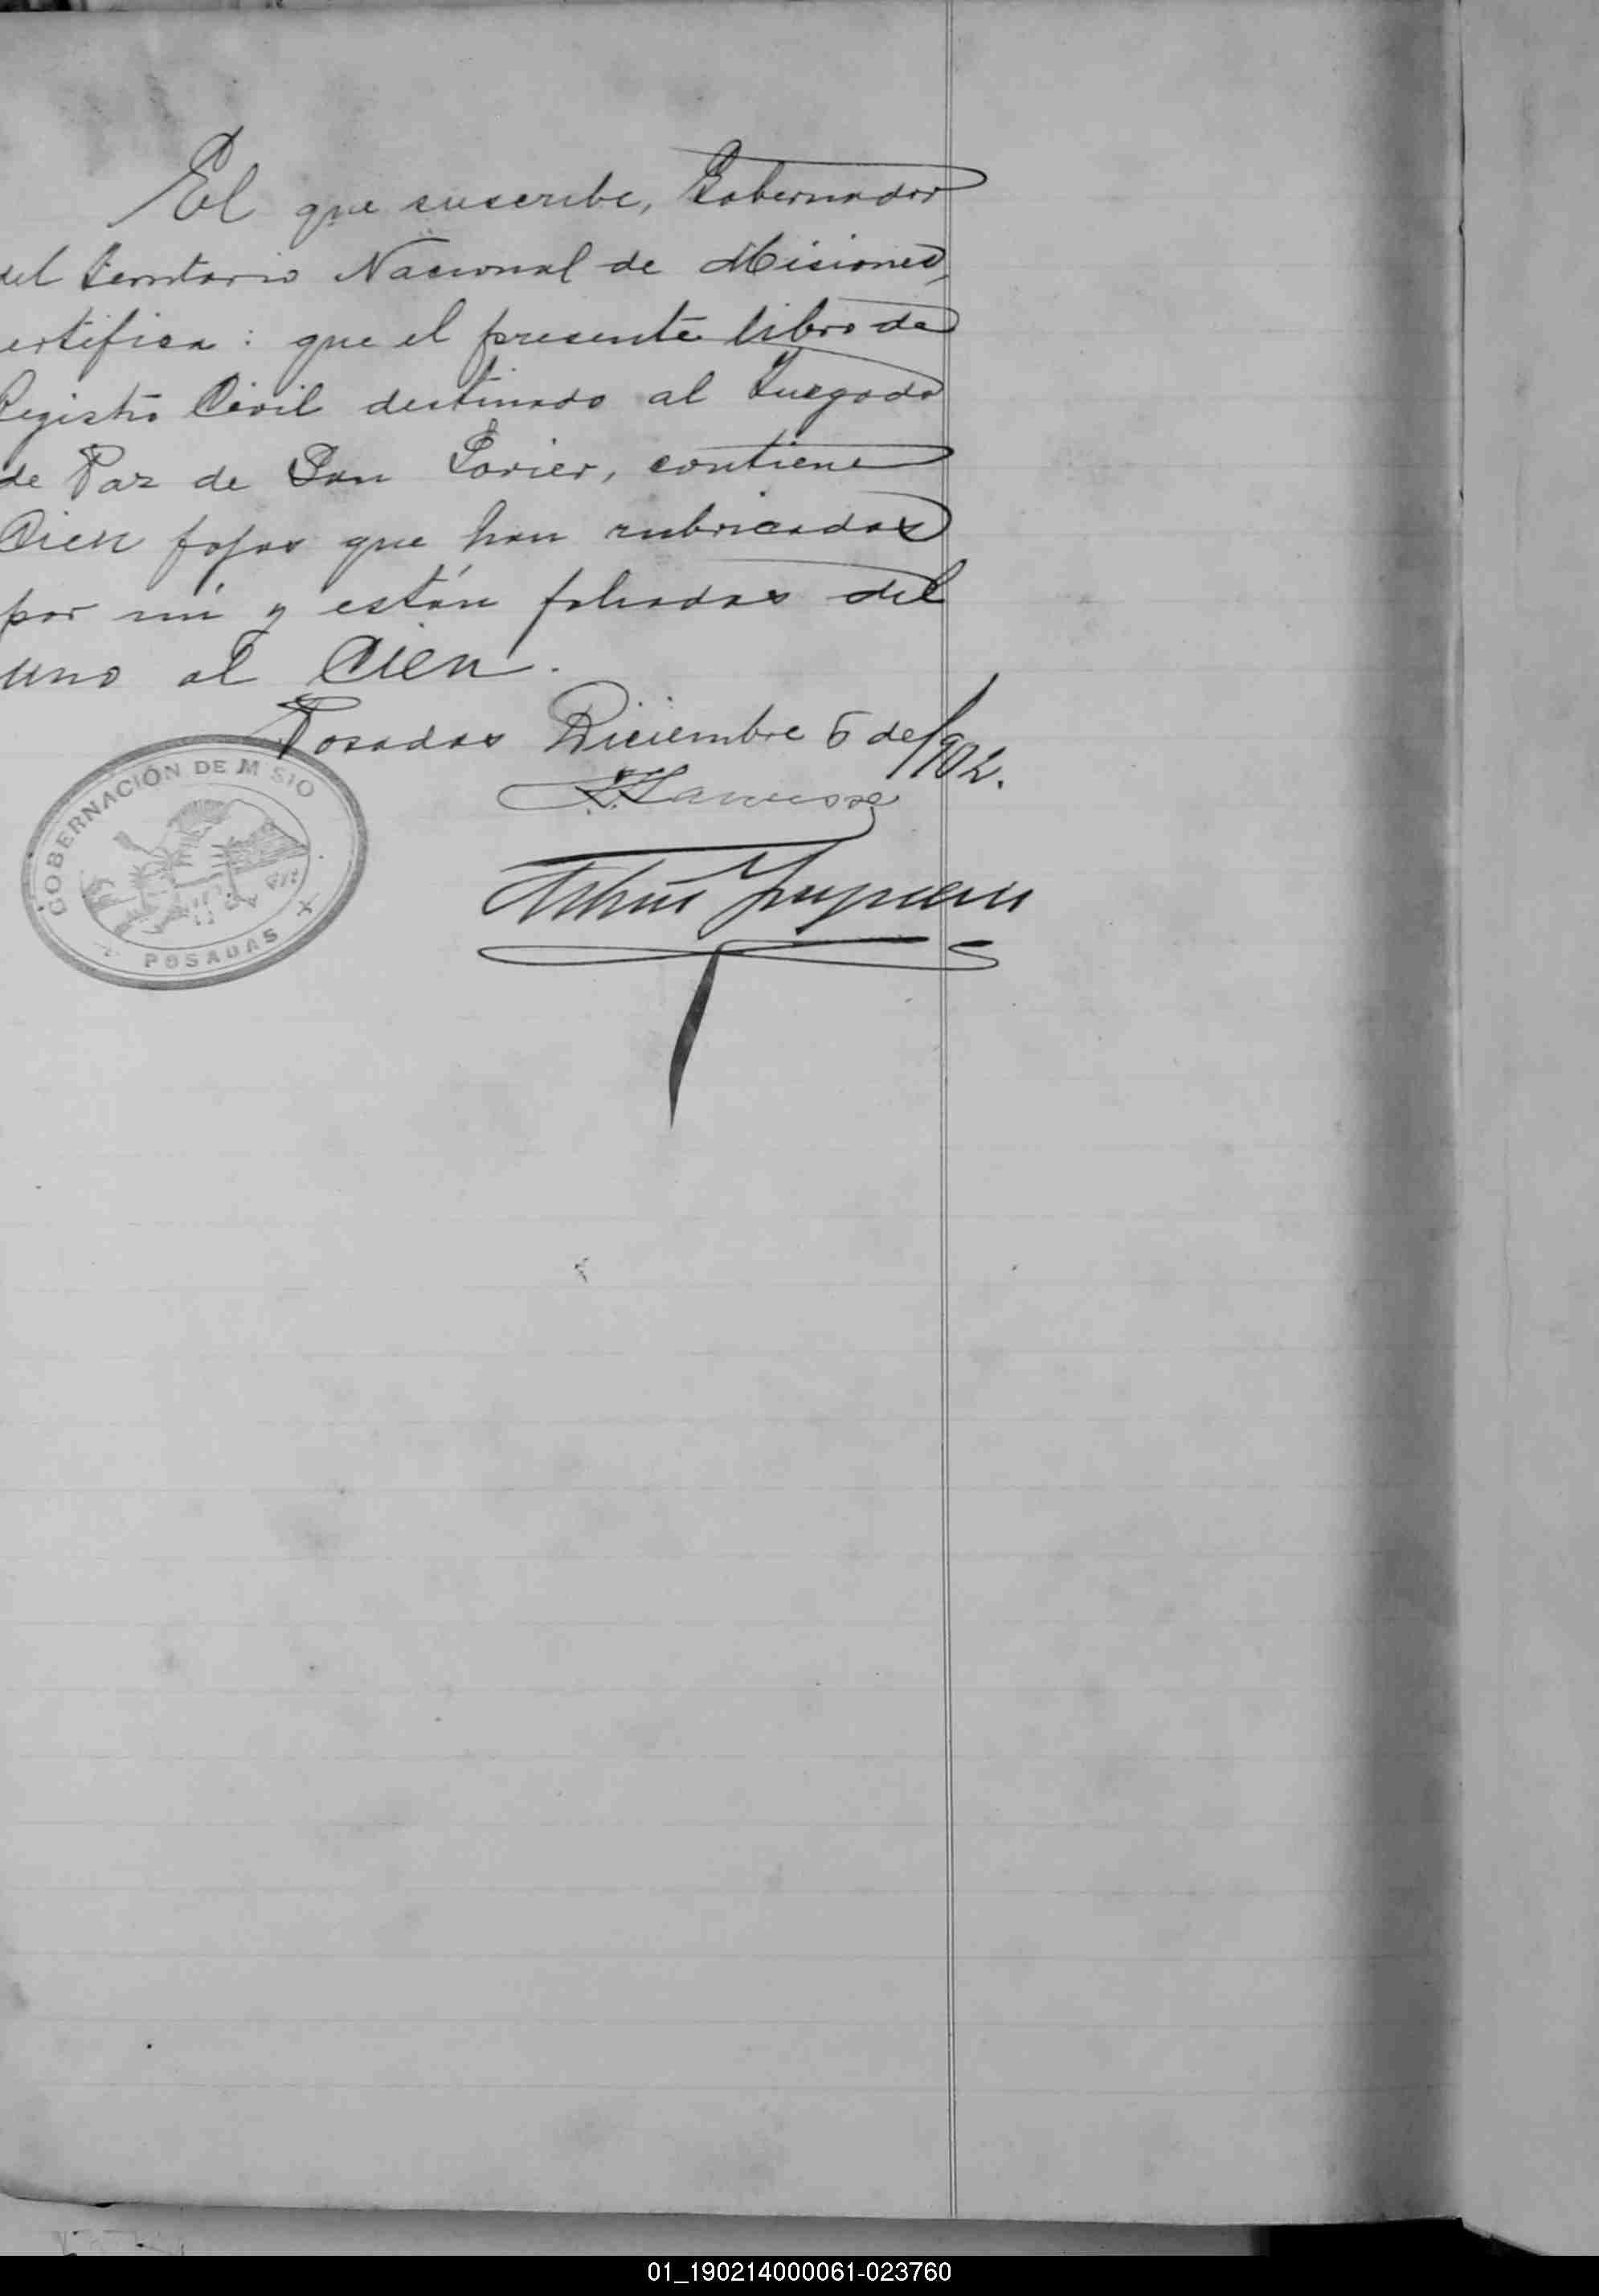 El que suscribe, Gobernador
del Territorio Nacional de Misiones,
ertifica: que el presente libro de
Registro Civil destinado al Juzgado
de Paz de San Javier, contiene
Cien fojas que han rubricadas
por mi y están foliadas del
uno al Cien.
Posadas Diciembre 6 de 1902.
J. J. Lanusse
GOBERNACIÓN DE MISIO
POSADAS
01_190214000061-023760